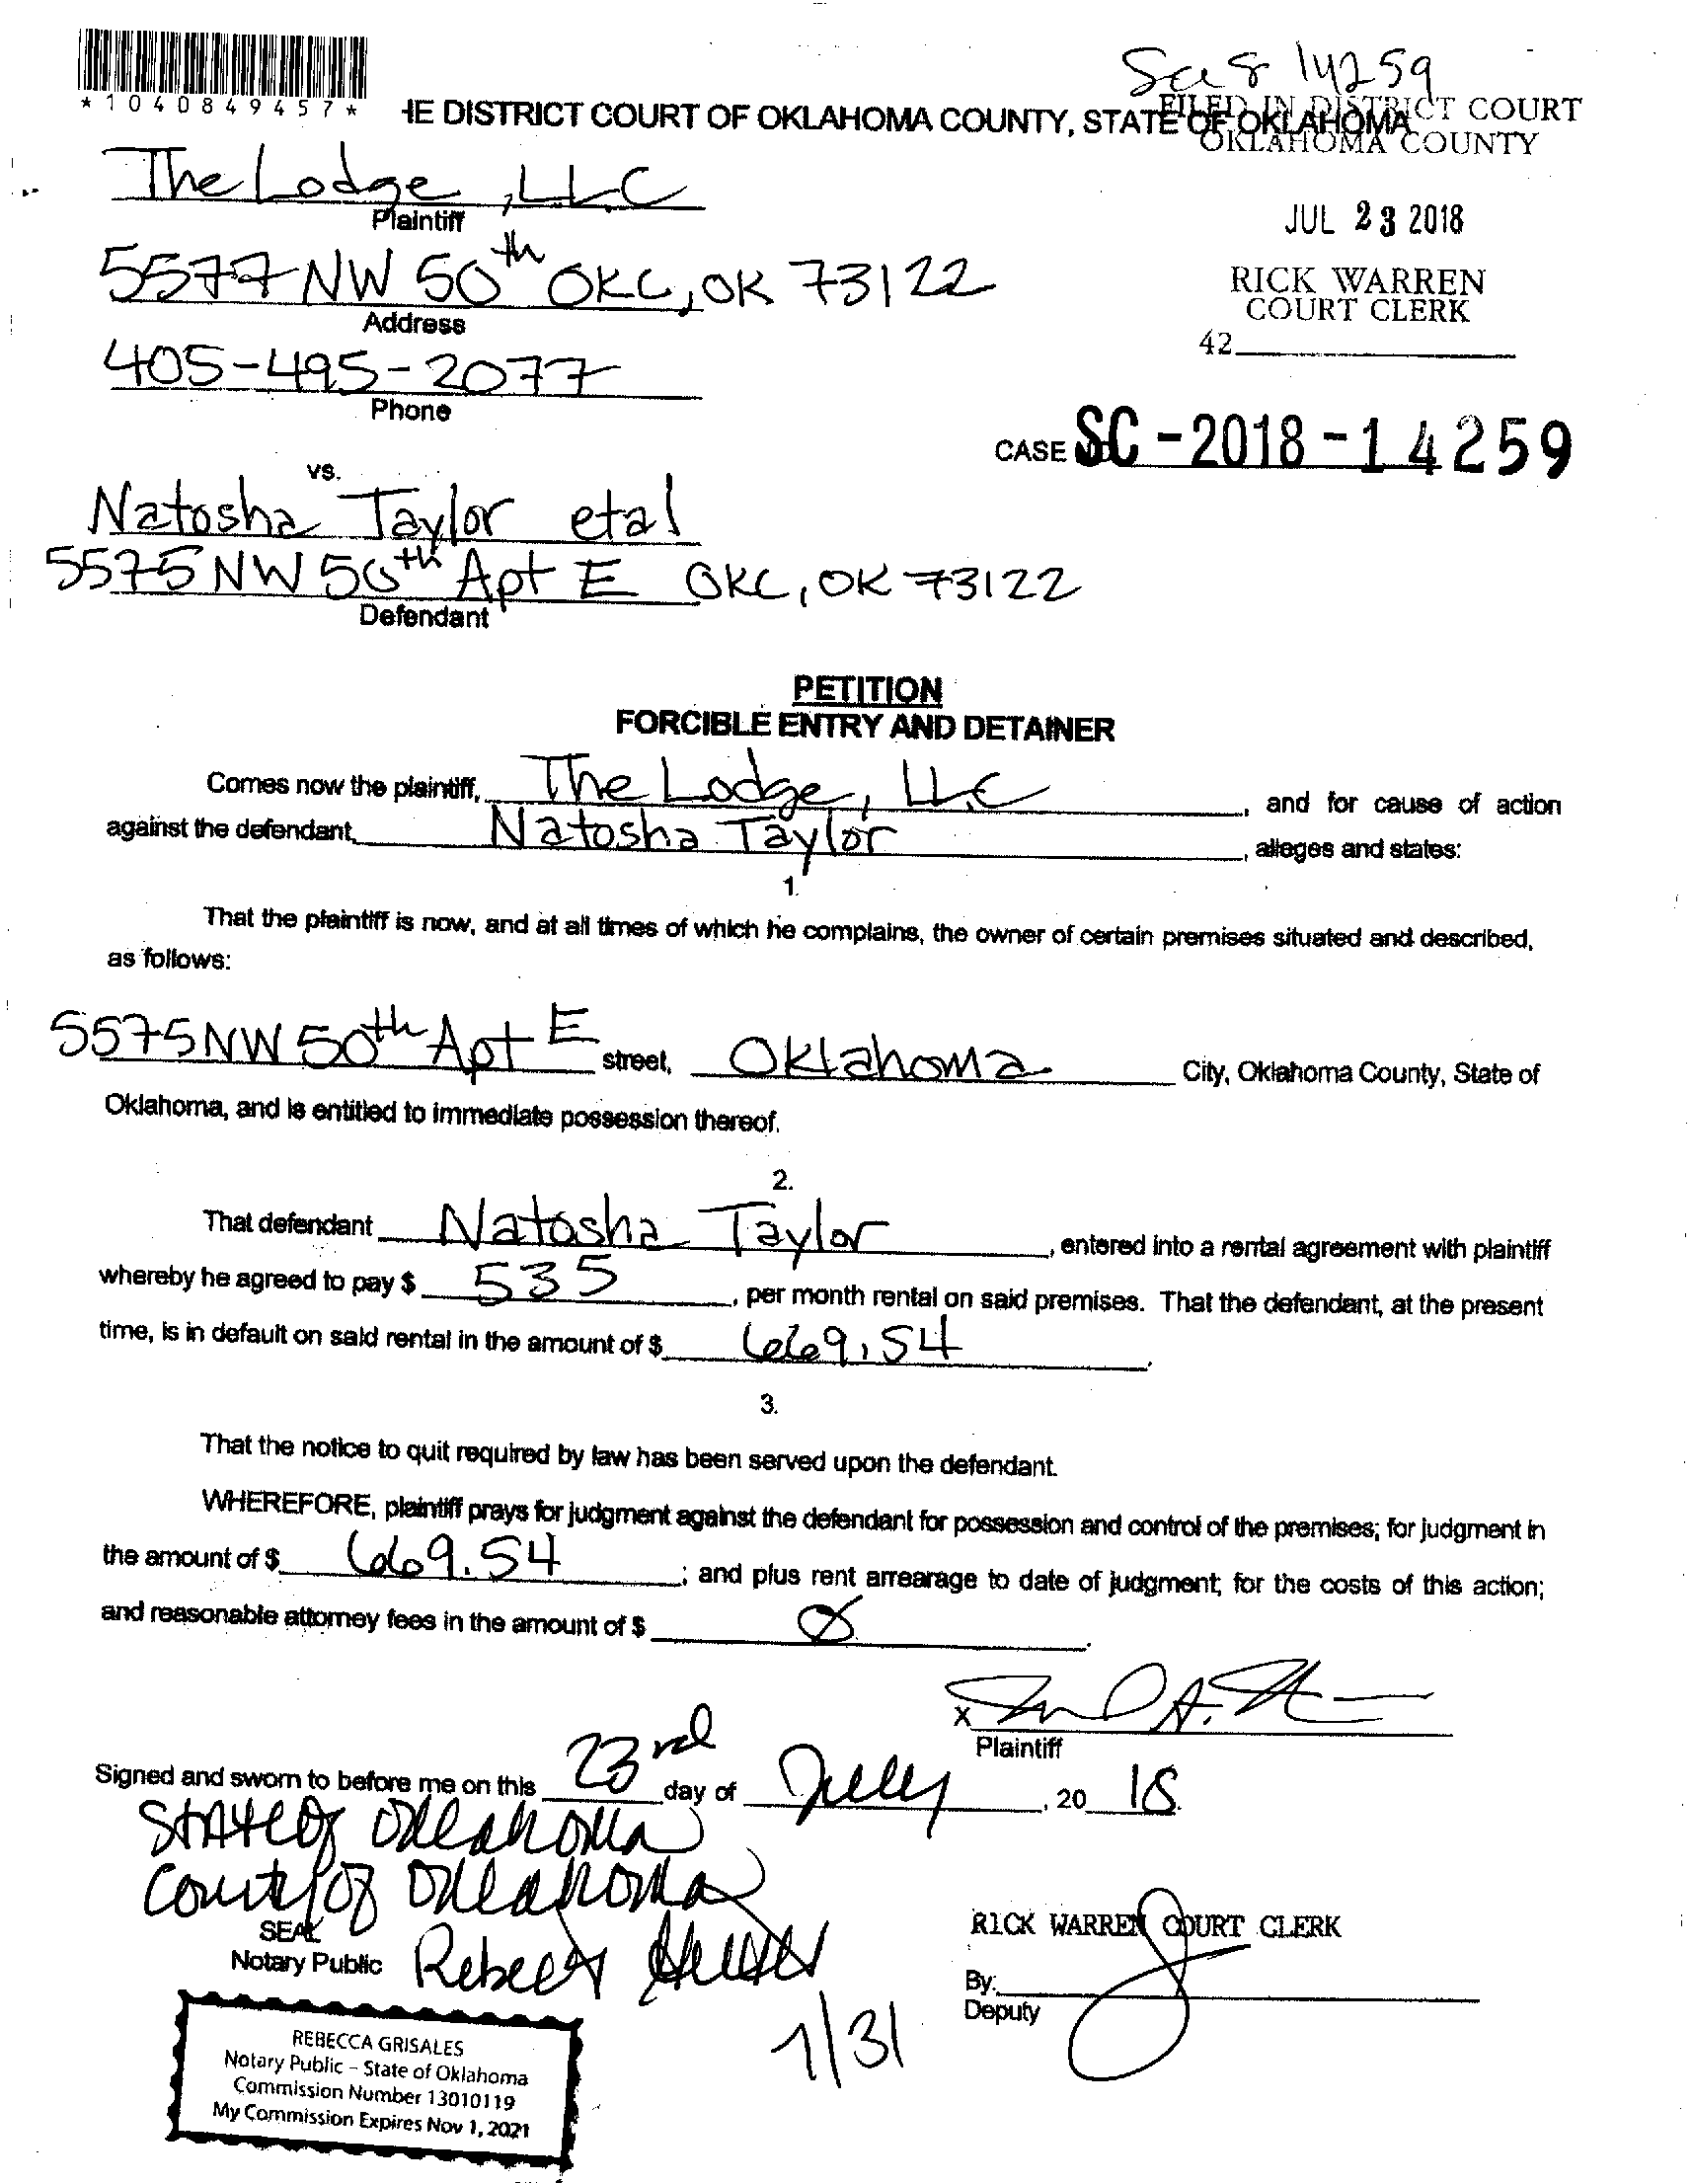 *1040849457*
Sc18 14259
HE DISTRICT COURT OF OKLAHOMA COUNTY, STATE OF OKLAHOMA
FILED IN DISTRICT COURT
OKLAHOMA COUNTY
The Lodge, LLC
Plaintiff
JUL 23 2018
5577 NW 50th OKC, OK 73122
Address
RICK WARREN
COURT CLERK
42
405-495-2077
Phone
CASE SC-2018-14259
vs.
Natosha Taylor etal
5575 NW 50th Apt E OKC, OK 73122
Defendant
PETITION
FORCIBLE ENTRY AND DETAINER
Comes now the plaintiff, The Lodge, LLC, and for cause of action
against the defendant, Natosha Taylor, alleges and states:
1.
That the plaintiff is now, and at all times of which he complains, the owner of certain premises situated and described,
as follows:
5575 NW 50th Apt E street, Oklahoma City, Oklahoma County, State of
Oklahoma, and is entitled to immediate possession thereof.
2.
That defendant Natosha Taylor, entered into a rental agreement with plaintiff
whereby he agreed to pay $ 535, per month rental on said premises. That the defendant, at the present
time, is in default on said rental in the amount of $ 669.54.
3.
That the notice to quit required by law has been served upon the defendant.
WHEREFORE, plaintiff prays for judgment against the defendant for possession and control of the premises; for judgment in
the amount of $ 669.54; and plus rent arrearage to date of judgment; for the costs of this action;
and reasonable attorney fees in the amount of $ Ø.
X
Plaintiff
Signed and sworn to before me on this 23rd day of July, 2018.
State of Oklahoma
County of Oklahoma
SEAL
Notary Public Rebecca
RICK WARREN COURT CLERK
By:
Deputy
7/31
REBECCA GRISALES
Notary Public - State of Oklahoma
Commission Number 13010119
My Commission Expires Nov 1, 2021